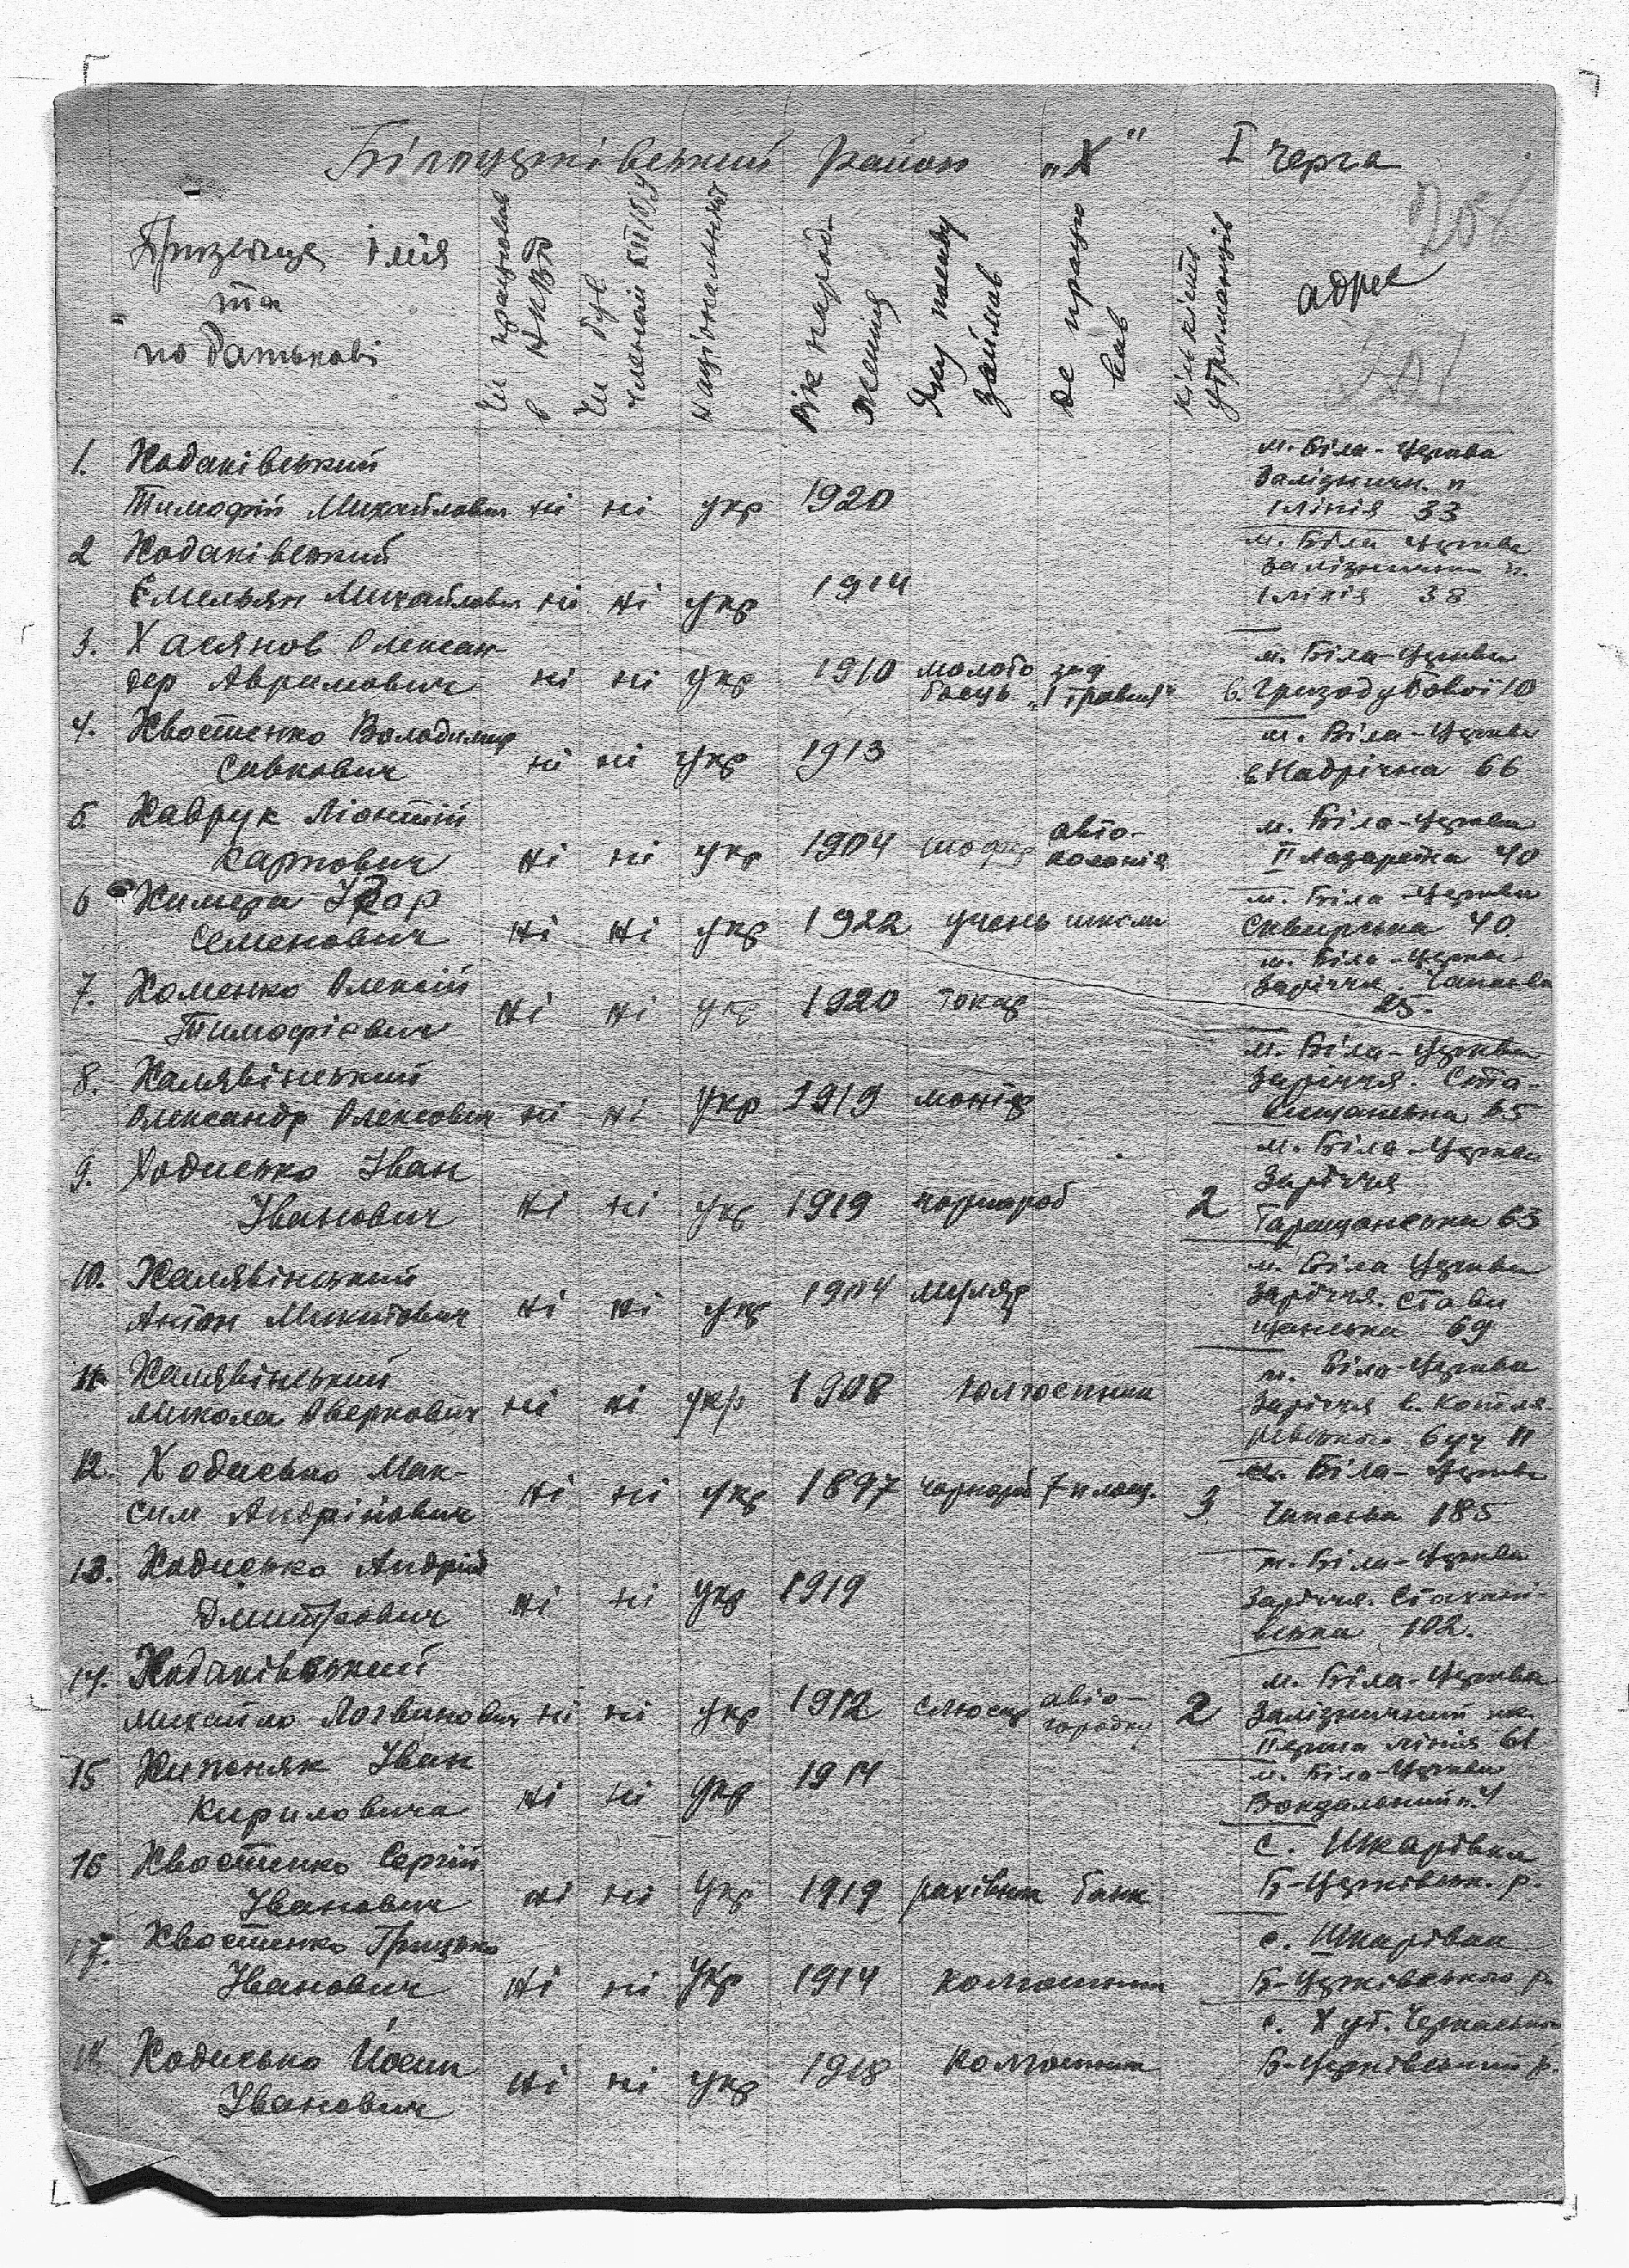 Білоцерківський район "Х" І черга
Прізвище імя
та
по батькові
Чи працював
в НКВД
Чи був
членом КП(б)У
національність
Рік народ-
ження
Яку посаду
займав
де працю
вав
кількість
утриманців
адрес
1. Ходаківський
Тимофій Михайлович ні ні укр 1920
м. Біла-Церква
Залізничн. п
1 лінія 33
2 Ходаківський
Ємельян Михайлович ні ні укр 1914
м. Біла Церква
Залізничний п.
1 лінія 38
3. Халянов Олексан
дер Аврамович ні ні укр 1910 молото зад
боєць "1 травня"
м. Біла-Церква
в. Гризодубової 10
4. Хвостенко Володимир
Савкович ні ні укр 1913
м. Біла-Церква
в. Надрічна 66
5. Хаврук Ліонтій
Карпович ні ні укр 1904 шофер авто-
колонія
м. Біла-Церква
ІІ Лазаретна 40
6 Химера Ігор
Семенович ні ні укр 1922 учень школи
м. Біла-Церква
Сквирська 40
7. Хоменко Олексій
Тимофієвич ні ні укр 1920 токар
м. Біла-Церква
Заріччя. Чапаєва
25.
8. Халявінський
Олександр Олексович ні ні укр 1919 моніф
м. Біла-Церква
Заріччя. Ста-
вищанська 65
9. Ходисько Іван
Іванович ні ні укр 1919 чорнороб 2
м. Біла-Церква
Заріччя
Таращанська 63
10. Халявінський
Антон Микитович ні ні укр 1904 муляр
м. Біла Церква
Заріччя. Стави
щанська 69
11. Халявінський
Микола Оверкович ні ні укр 1908 колгоспник
м. Біла-Церква
Заріччя в. Котля
ревського 6
12. Ходисько Мак-
сим Андрійович ні ні укр 1897 чорнороб 7 площ. 3
м. Біла-Церква
Чапаєва 185
13. Ходисько Андрій
Дмитрович ні ні укр 1919
м. Біла-Церква
Заріччя. Стахані-
вська 102.
14. Ходаківський
Михайло Логвинович ні ні укр 1912 слюсар авто-
городку 2
м. Біла-Церква
Залізничний
Перша лінія 61
15 Хипоняк Іван
Кириловича ні ні укр 1914
м. Біла-Церква
Вокзальний п. 4
16 Хвостенко Сергій
Іванович ні ні укр 1919 рахівник банк
с. Шкарівка
Б-Церківськ. р.
17. Хвостенко Грицько
Іванович ні ні укр 1914 колгоспник
с. Шкарівка
Б-Церківського р.
18. Ходисько Йосип
Іванович ні ні укр 1918 Колгоспник
с. Хут. Черкаський
Б-Церківський р.